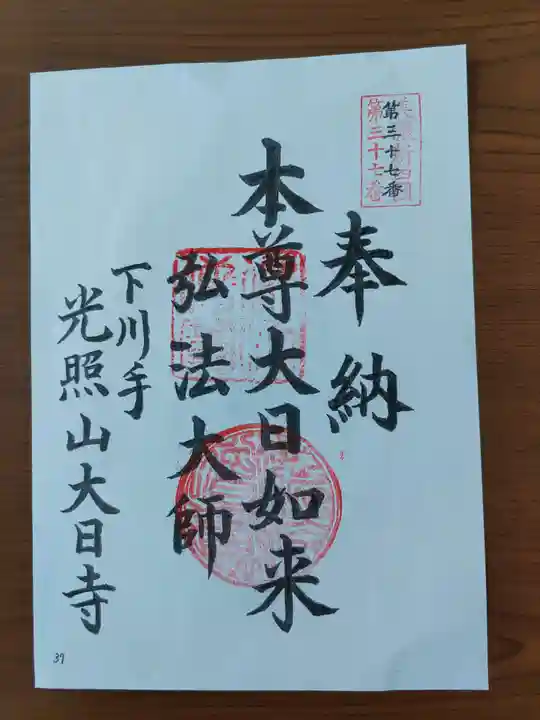 美濃新四国
第三十七番
第三十七番
奉納
本尊大日如来
弘法大師
下川手
光照山大日寺
37